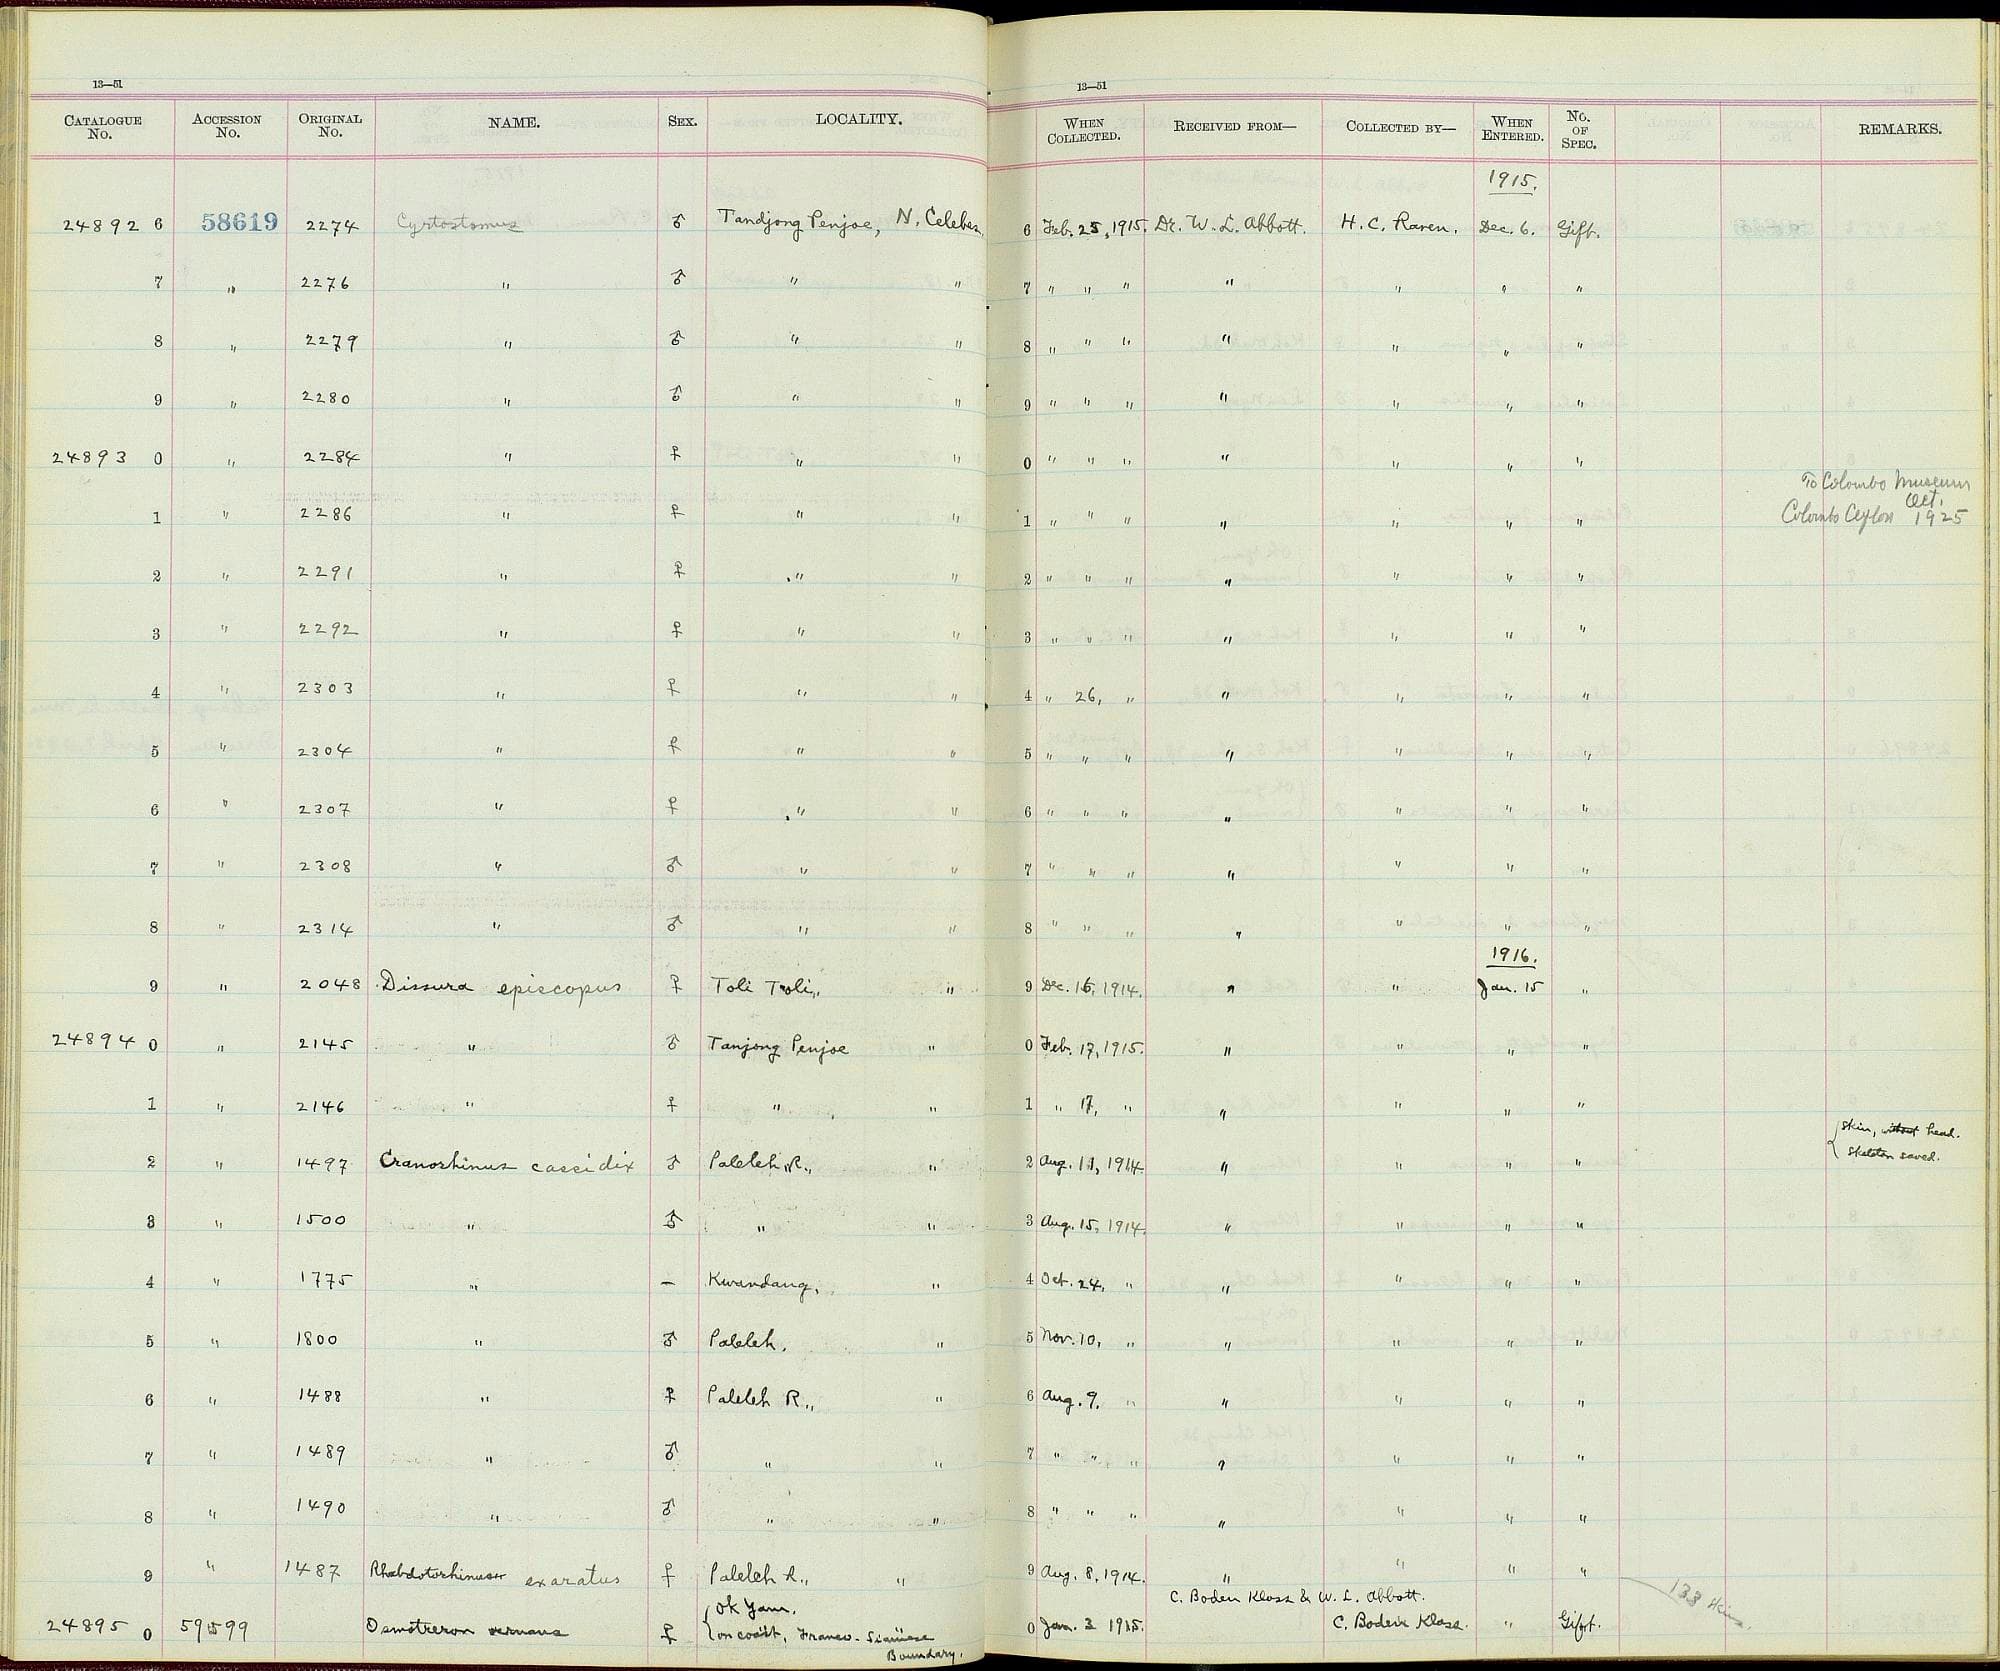 13—51
CATALOGUE No. ACCESSION No. ORIGINAL No. NAME. SEX. LOCALITY.
24892 6 58619 2274 Cyrtostomus ♂ Tandjong Penjoe, N. Celebes.
7 " 2276 " ♂ " "
8 " 2279 " ♂ " "
9 " 2280 " ♂ " "
24893 0 " 2284 " ♀ " "
1 " 2286 " ♀ " "
2 " 2291 " ♀ " "
3 " 2292 " ♀ " "
4 " 2303 " ♀ " "
5 " 2304 " ♀ " "
6 " 2307 " ♀ " "
7 " 2308 " ♂ " "
8 " 2314 " ♂ " "
9 " 2048 Dissura episcopus ♀ Toli Toli, "
24894 0 " 2145 " ♂ Tanjong Penjoe "
1 " 2146 " ♀ " "
2 " 1497 Cranorhinus cassidix ♂ Paleleh R., "
3 " 1500 " ♂ " "
4 " 1775 " — Kwandang, "
5 " 1800 " ♂ Paleleh, "
6 " 1488 " ♀ Paleleh R., "
7 " 1489 " ♂ " "
8 " 1490 " ♂ " "
9 " 1487 Rhabdotorhinus exaratus ♀ Paleleh R., "
24895 0 59599 Osmotreron vernans ♀ Ok Yam.
on coast, Franco-Siamese
Boundary.
13—51
WHEN COLLECTED. RECEIVED FROM— COLLECTED BY— WHEN ENTERED. No. OF SPEC. REMARKS.
1915.
6 Feb. 25, 1915. Dr. W. L. Abbott. H. C. Raven. Dec. 6. Gift.
7 " " " " " " "
8 " " " " " " "
9 " " " " " " "
0 " " " " " " "
To Colombo Museum
Oct.
1 " " " " " " " Colombo Ceylon 1925
2 " " " " " " "
3 " " " " " " "
4 " 26, " " " " "
5 " " " " " " "
6 " " " " " " "
7 " " " " " " "
8 " " " " " " "
1916.
9 Dec. 16, 1914. " " Jan. 15 "
0 Feb. 17, 1915. " " " "
1 " 17, " " " " "
skin, without head.
2 Aug. 11, 1914 " " " " skeleton saved.
3 Aug. 15, 1914. " " " "
4 Oct. 24, " " " " "
5 Nov. 10, " " " " "
6 Aug. 9, " " " " "
7 " " " " " " "
8 " " " " " " "
9 Aug. 8, 1914. " " " "
C. Boden Kloss & W. L. Abbott. 133 skins
0 Jan. 3 1915. C. Boden Kloss. " Gift.